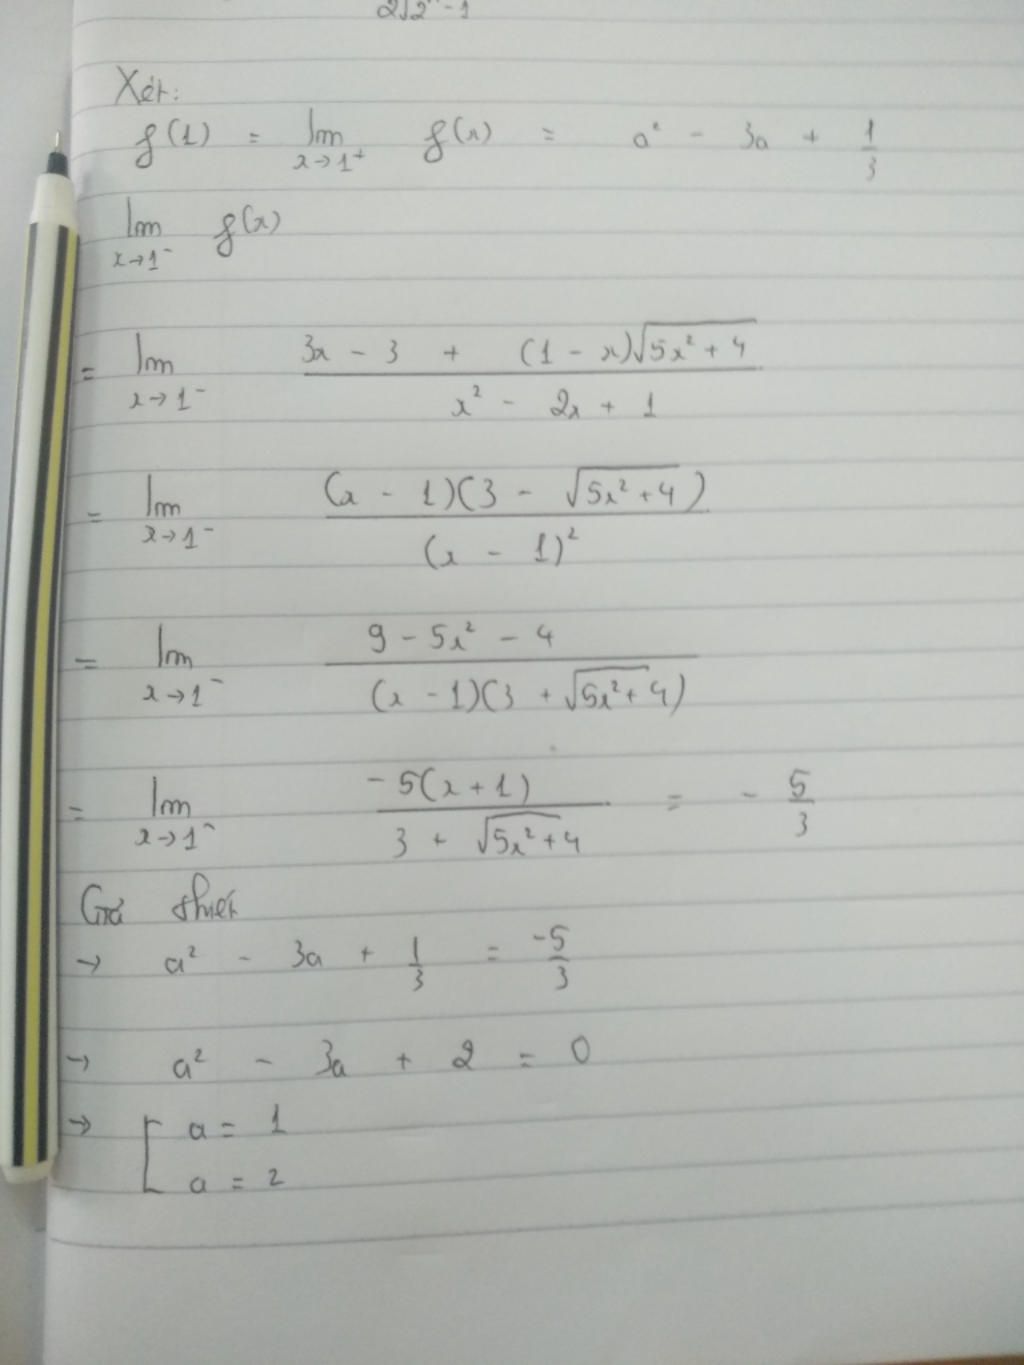 Xét:
f(1) = lim x→1⁺ f(x) = a² - 3a + 1/3
lim x→1⁻ f(x)
= lim x→1⁻ (3x - 3 + (1 - x)√(5x² + 4)) / (x² - 2x + 1)
= lim x→1⁻ ((x - 1)(3 - √(5x² + 4))) / (x - 1)²
= lim x→1⁻ (9 - 5x² - 4) / ((x - 1)(3 + √(5x² + 4)))
= lim x→1⁻ (-5(x + 1)) / (3 + √(5x² + 4)) = - 5/3
Giả thiết
→ a² - 3a + 1/3 = -5/3
→ a² - 3a + 2 = 0
→ [ a = 1
a = 2